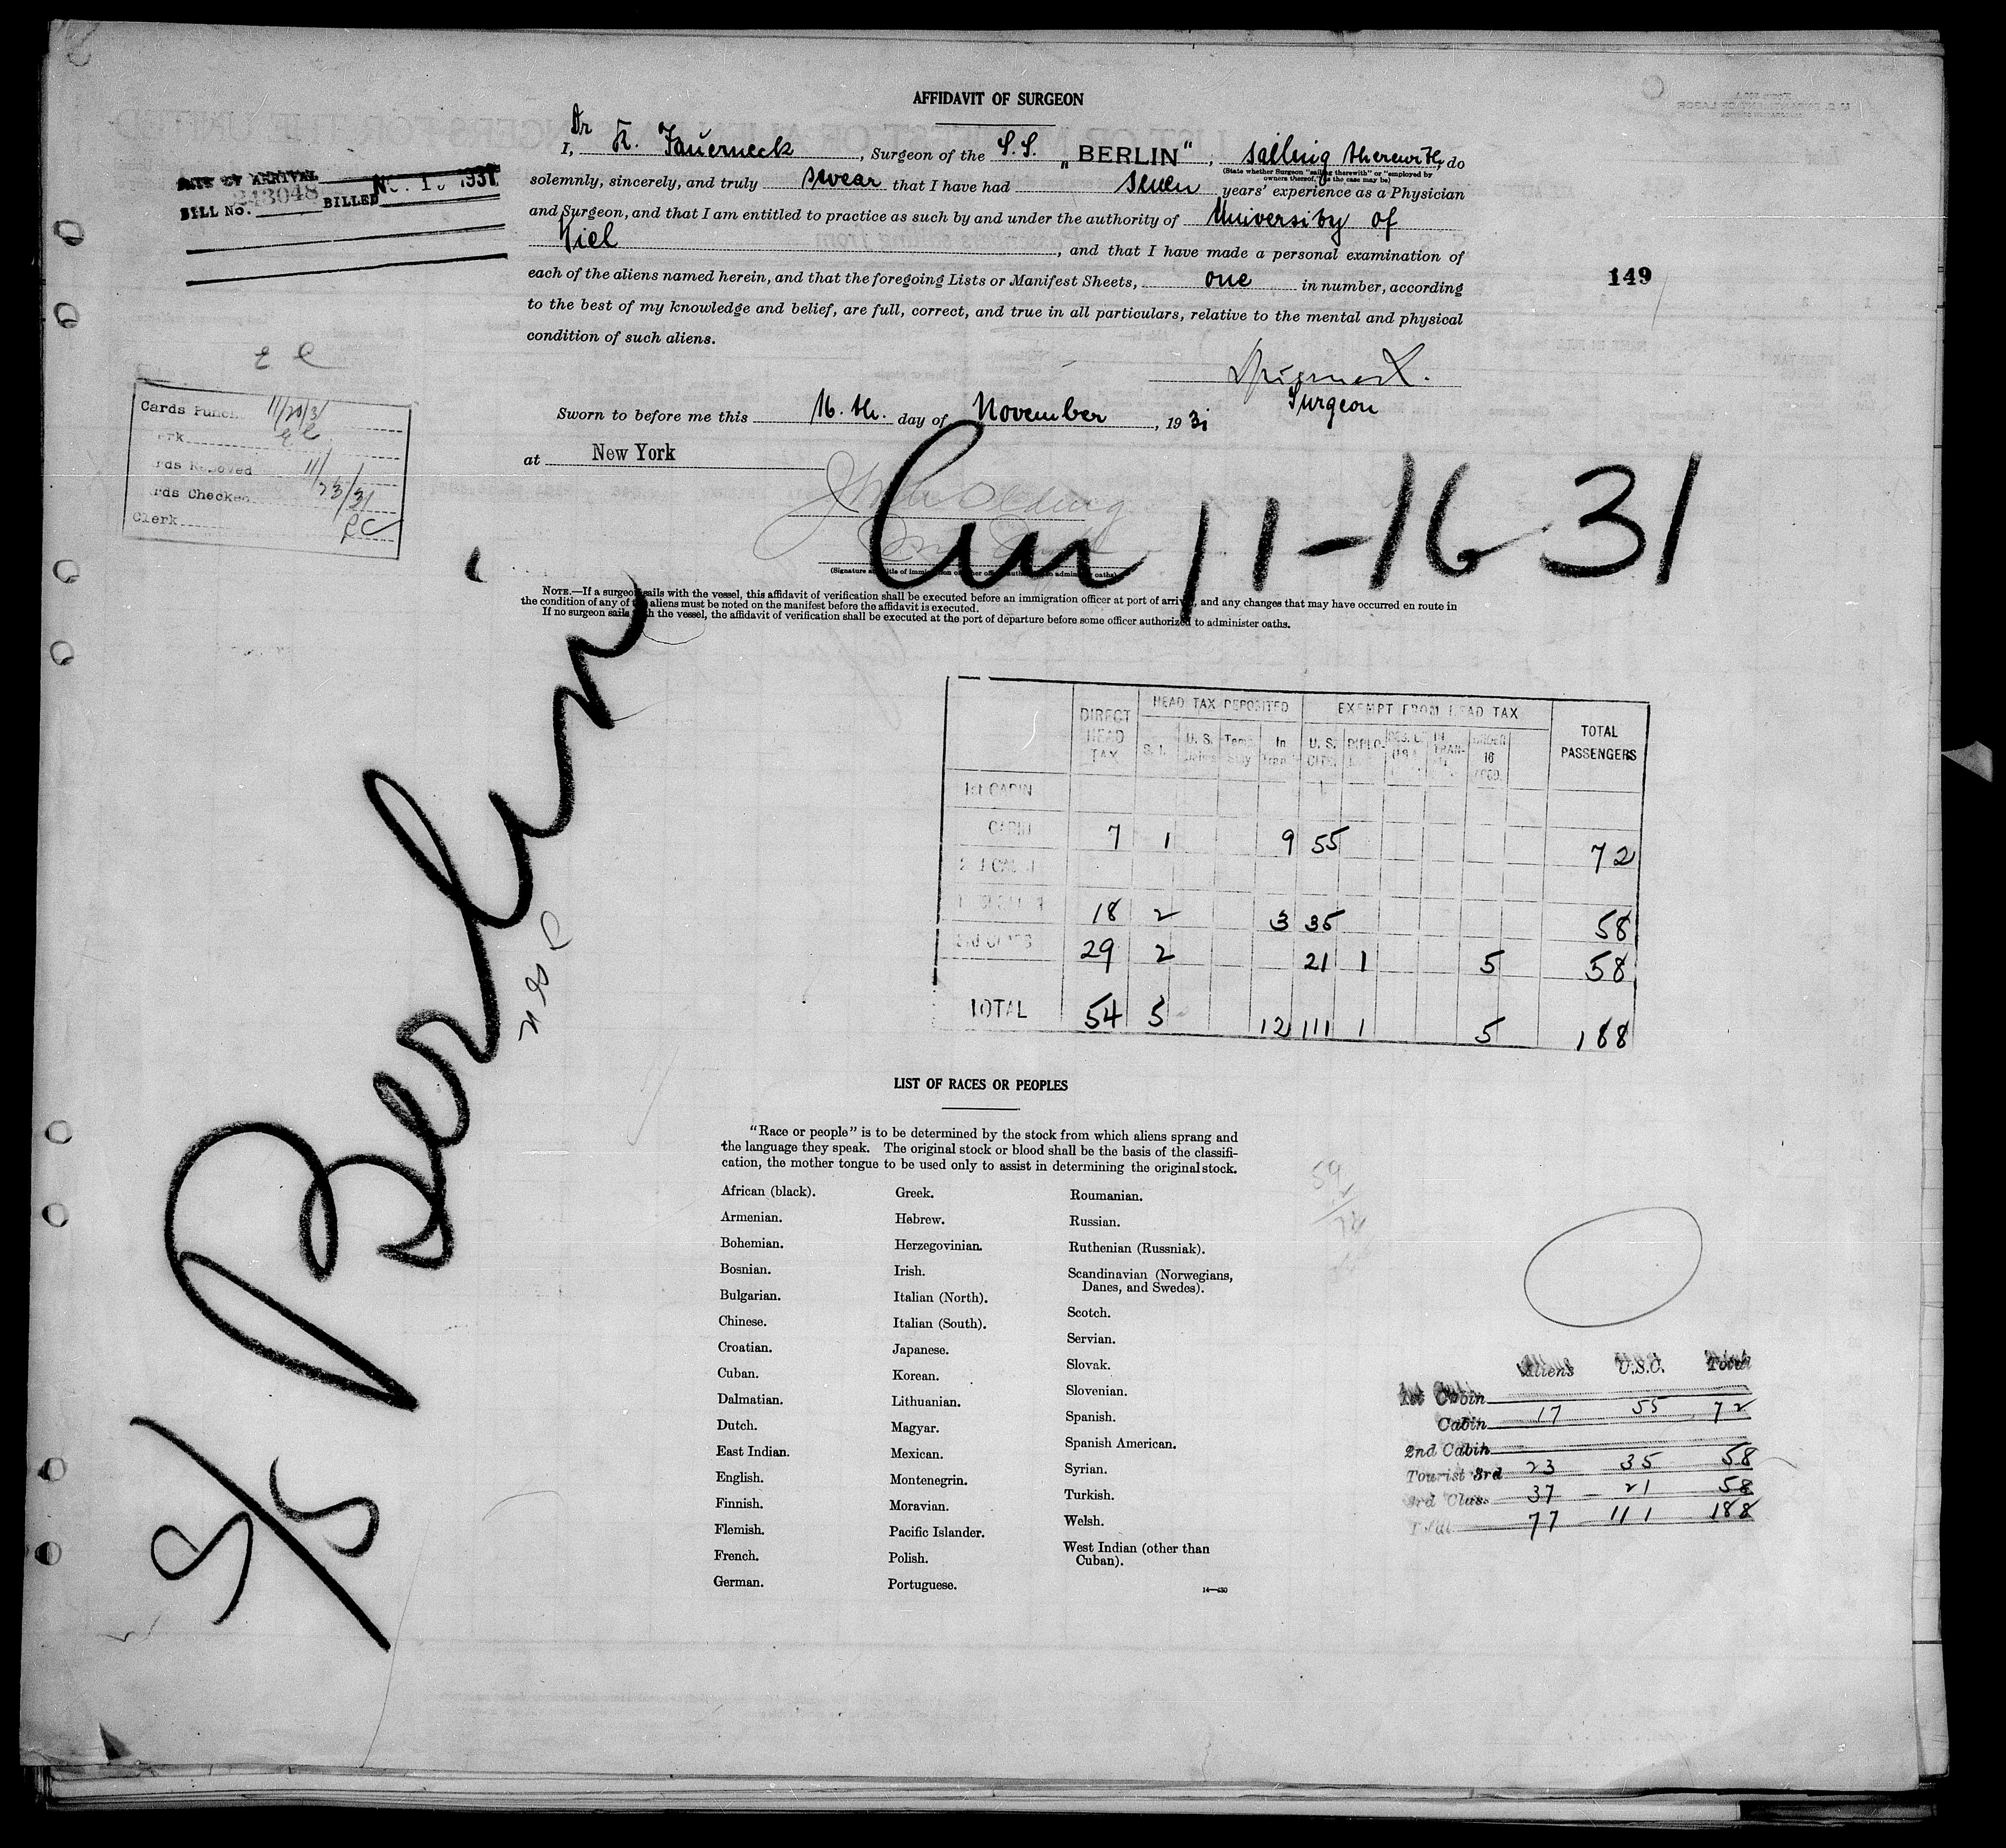 AFFIDAVIT OF SURGEON
Dr
I, K. Fauerneck, Surgeon of the S.S. „BERLIN", sailing therewith, do
(State whether Surgeon "sailing therewith" or "employed by owners thereof," as the case may be)
solemnly, sincerely, and truly swear that I have had seven years' experience as a Physician
and Surgeon, and that I am entitled to practice as such by and under the authority of University of
Kiel, and that I have made a personal examination of
each of the aliens named herein, and that the foregoing Lists or Manifest Sheets, one in number, according
to the best of my knowledge and belief, are full, correct, and true in all particulars, relative to the mental and physical
condition of such aliens.
Surgeon
Sworn to before me this 16.th. day of November, 1931
at New York
DATE OF ARRIVAL
BILL No. 243048 BILLED 1931
149
Cards Punch 11/20/31
rk
rds Removed 11/23/31
rds Checked
Clerk
11-16 31
(Signature and title of immigration or other officer authorized to administer oaths)
NOTE.—If a surgeon sails with the vessel, this affidavit of verification shall be executed before an immigration officer at port of arrival, and any changes that may have occurred en route in
the condition of any of the aliens must be noted on the manifest before the affidavit is executed.
If no surgeon sails with the vessel, the affidavit of verification shall be executed at the port of departure before some officer authorized to administer oaths.
S/S Berlin
DIRECT HEAD TAX HEAD TAX DEPOSITED EXEMPT FROM HEAD TAX TOTAL PASSENGERS
S. I. U. S. Temp In U. S. DIPLO. IN TRAN- UNDER 16
1st CABIN
CABIN 7 1 9 55 72
18 2 3 35 58
29 2 21 1 5 58
TOTAL 54 5 12 111 1 5 188
LIST OF RACES OR PEOPLES
"Race or people" is to be determined by the stock from which aliens sprang and
the language they speak. The original stock or blood shall be the basis of the classifi-
cation, the mother tongue to be used only to assist in determining the original stock.
African (black).
Armenian.
Bohemian.
Bosnian.
Bulgarian.
Chinese.
Croatian.
Cuban.
Dalmatian.
Dutch.
East Indian.
English.
Finnish.
Flemish.
French.
German.
Greek.
Hebrew.
Herzegovinian.
Irish.
Italian (North).
Italian (South).
Japanese.
Korean.
Lithuanian.
Magyar.
Mexican.
Montenegrin.
Moravian.
Pacific Islander.
Polish.
Portuguese.
Roumanian.
Russian.
Ruthenian (Russniak).
Scandinavian (Norwegians,
Danes, and Swedes).
Scotch.
Servian.
Slovak.
Slovenian.
Spanish.
Spanish American.
Syrian.
Turkish.
Welsh.
West Indian (other than
Cuban).
14—430
Aliens U.S.C. Total
1st Cabin
Cabin 17 55 72
2nd Cabin
Tourist 3rd 23 35 58
3rd Clas. 37 21 58
Total 77 111 188